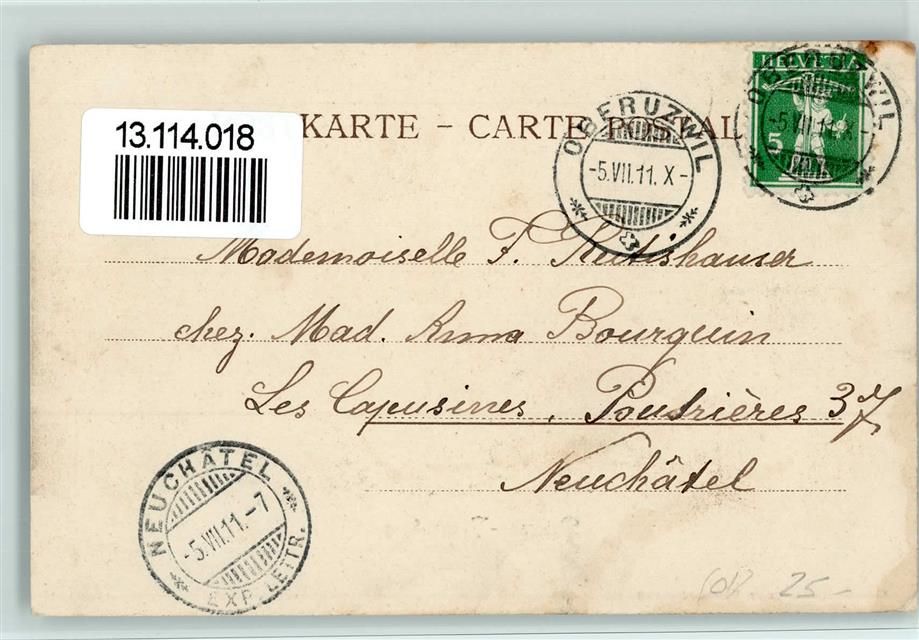 13.114.018
KARTE – CARTE POSTAL
HELVETIA
5
OBERUZWIL
-5.VII.11.X-
OBERUZWIL
-5.VII.11.
Mademoiselle F.
chez. Mad. Anna Bourquin
Les Capusines, Poudrières 37
Neuchâtel
NEUCHÂTEL
-5.VII.11.-7
EXP. LETTR.
25-